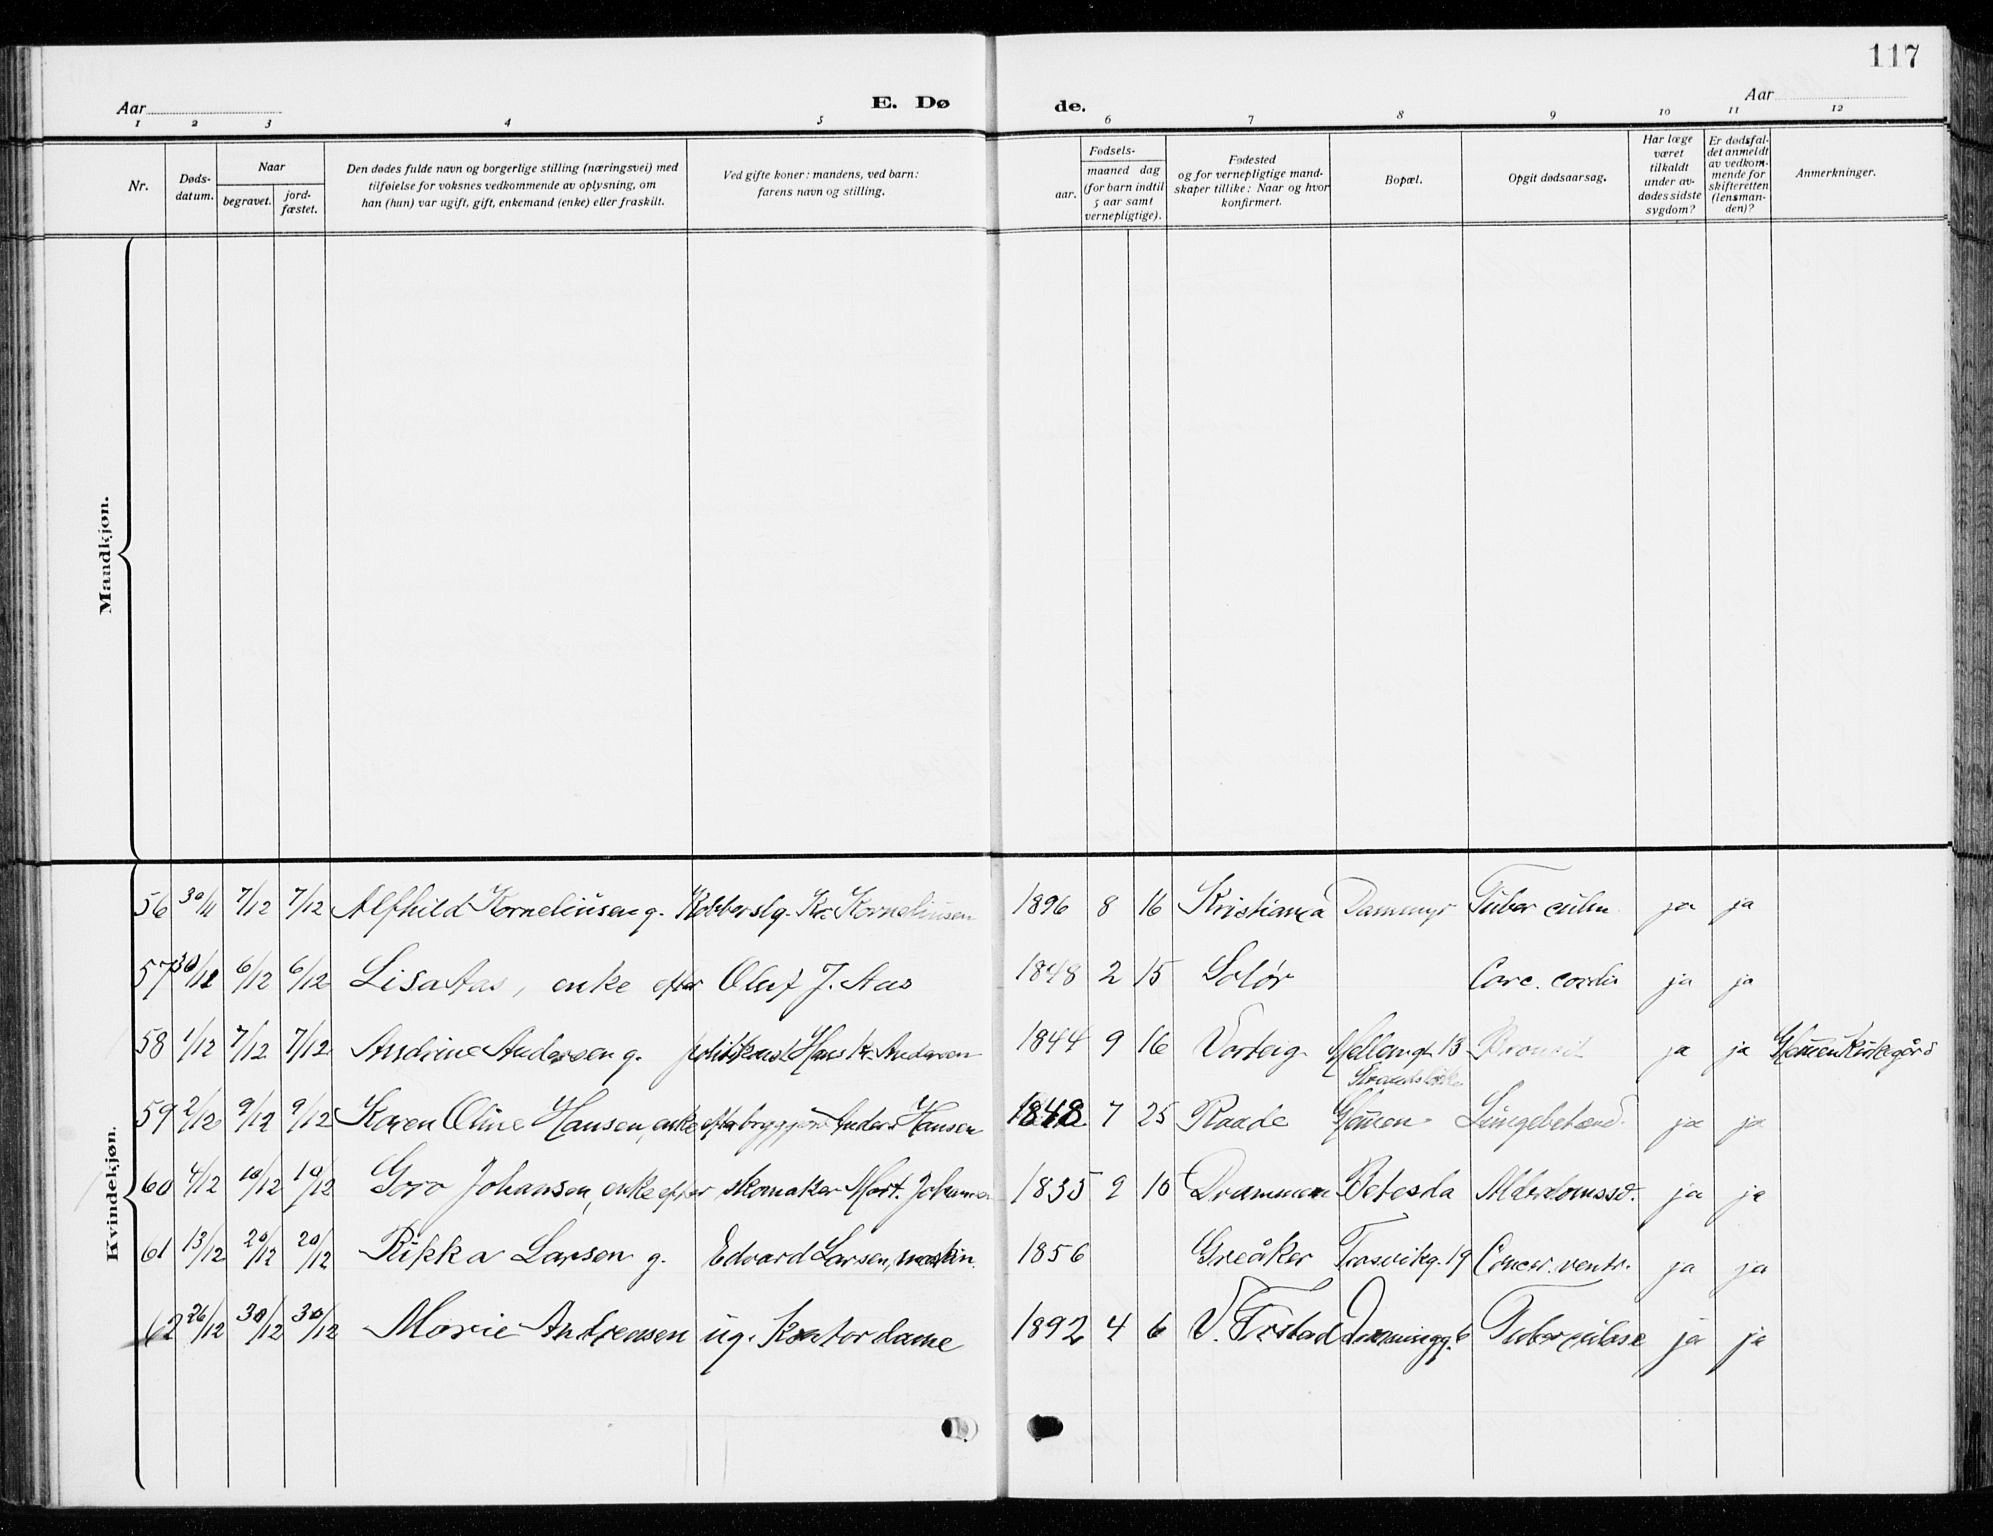 117
Aar E. Dø de. Aar
1 2 3 4 5 6 7 8 9 10 11 12
Nr.
Døds-
datum.
Naar
begravet.
jord-
fæstet.
Den dødes fulde navn og borgerlige stilling (næringsvei) med
tilføielse for voksnes vedkommende av oplysning, om
han (hun) var ugift, gift, enkemand (enke) eller fraskilt.
Ved gifte koner: mandens, ved barn:
farens navn og stilling.
Fødsels-
aar.
maaned dag
(for barn indtil
5 aar samt
vernepligtige).
Fødested
og for vernepligtige mand-
skaper tillike: Naar og hvor
konfirmert.
Bopæl.
Opgit dødsaarsag.
Har læge
været
tilkaldt
under av-
dødes sidste
sygdom?
Er dødsfal-
det anmeldt
av vedkom-
mende for
skifteretten
(lensman-
den)?
Anmerkninger.
Mandkjøn.
Kvindekjøn.
56 30/11 7/12 7/12 Alfhild Korneliusen g. Kobberslg. Kr. Korneliusen 1896 8 16 Kristiania Dammyr Tubercul. ja ja
57 30/11 6/12 6/12 Lisa Aas, enke efter Oluf J. Aas 1848 2 15 Solør Carc. cordis ja ja
58 1/12 7/12 7/12 Andrine Andersen g. politikonst Hans Kr. Andersen 1844 9 16 Varteig Mellomgt 13 ja ja Glemmen Kirkegård
59 2/12 9/12 9/12 Karen Oline Hansen, enke efter bryggeri Anders Hansen 1848 7 25 Raade Glemmen Lungebetænd. ja ja
60 4/12 10/12 10/12 Goro Johansen, enke efter skomaker Mart. Johansen 1835 2 10 Drammen Betesda Alderdomssv. ja ja
61 13/12 20/12 20/12 Rikka Larsen g. Edvard Larsen, maskin. 1856 Greåker Trosvikg. 19 Cancer. ventr. ja ja
62 26/12 30/12 30/12 Marie Andreasen ug. Kontordame 1892 4 6 Tuberculose ja ja